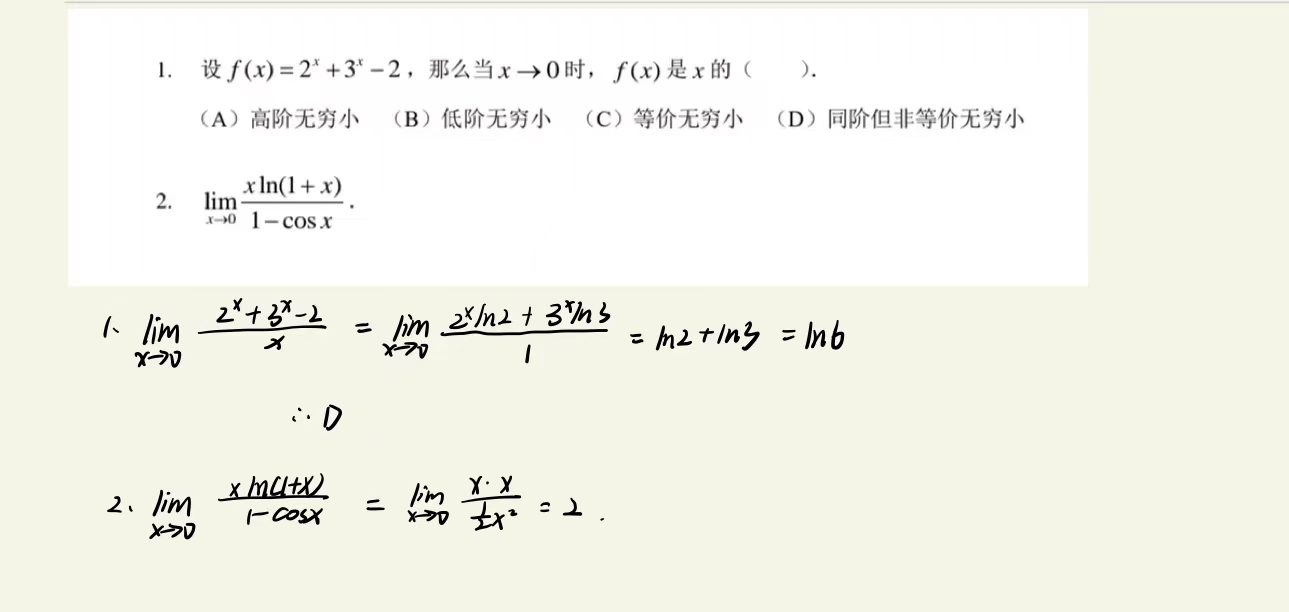 1. 设 f(x) = 2^x + 3^x − 2，那么当 x → 0 时，f(x) 是 x 的（　　）.
（A）高阶无穷小 （B）低阶无穷小 （C）等价无穷小 （D）同阶但非等价无穷小
2. lim_{x→0} \frac{x ln(1+x)}{1−cos x}.
1、 lim_{x→0} \frac{2^x+3^x-2}{x} = lim_{x→0} \frac{2^x ln2 + 3^x ln3}{1} = ln2 + ln3 = ln6
∴ D
2、 lim_{x→0} \frac{x ln(1+x)}{1-cosx} = lim_{x→0} \frac{x·x}{\frac{1}{2}x^2} = 2.